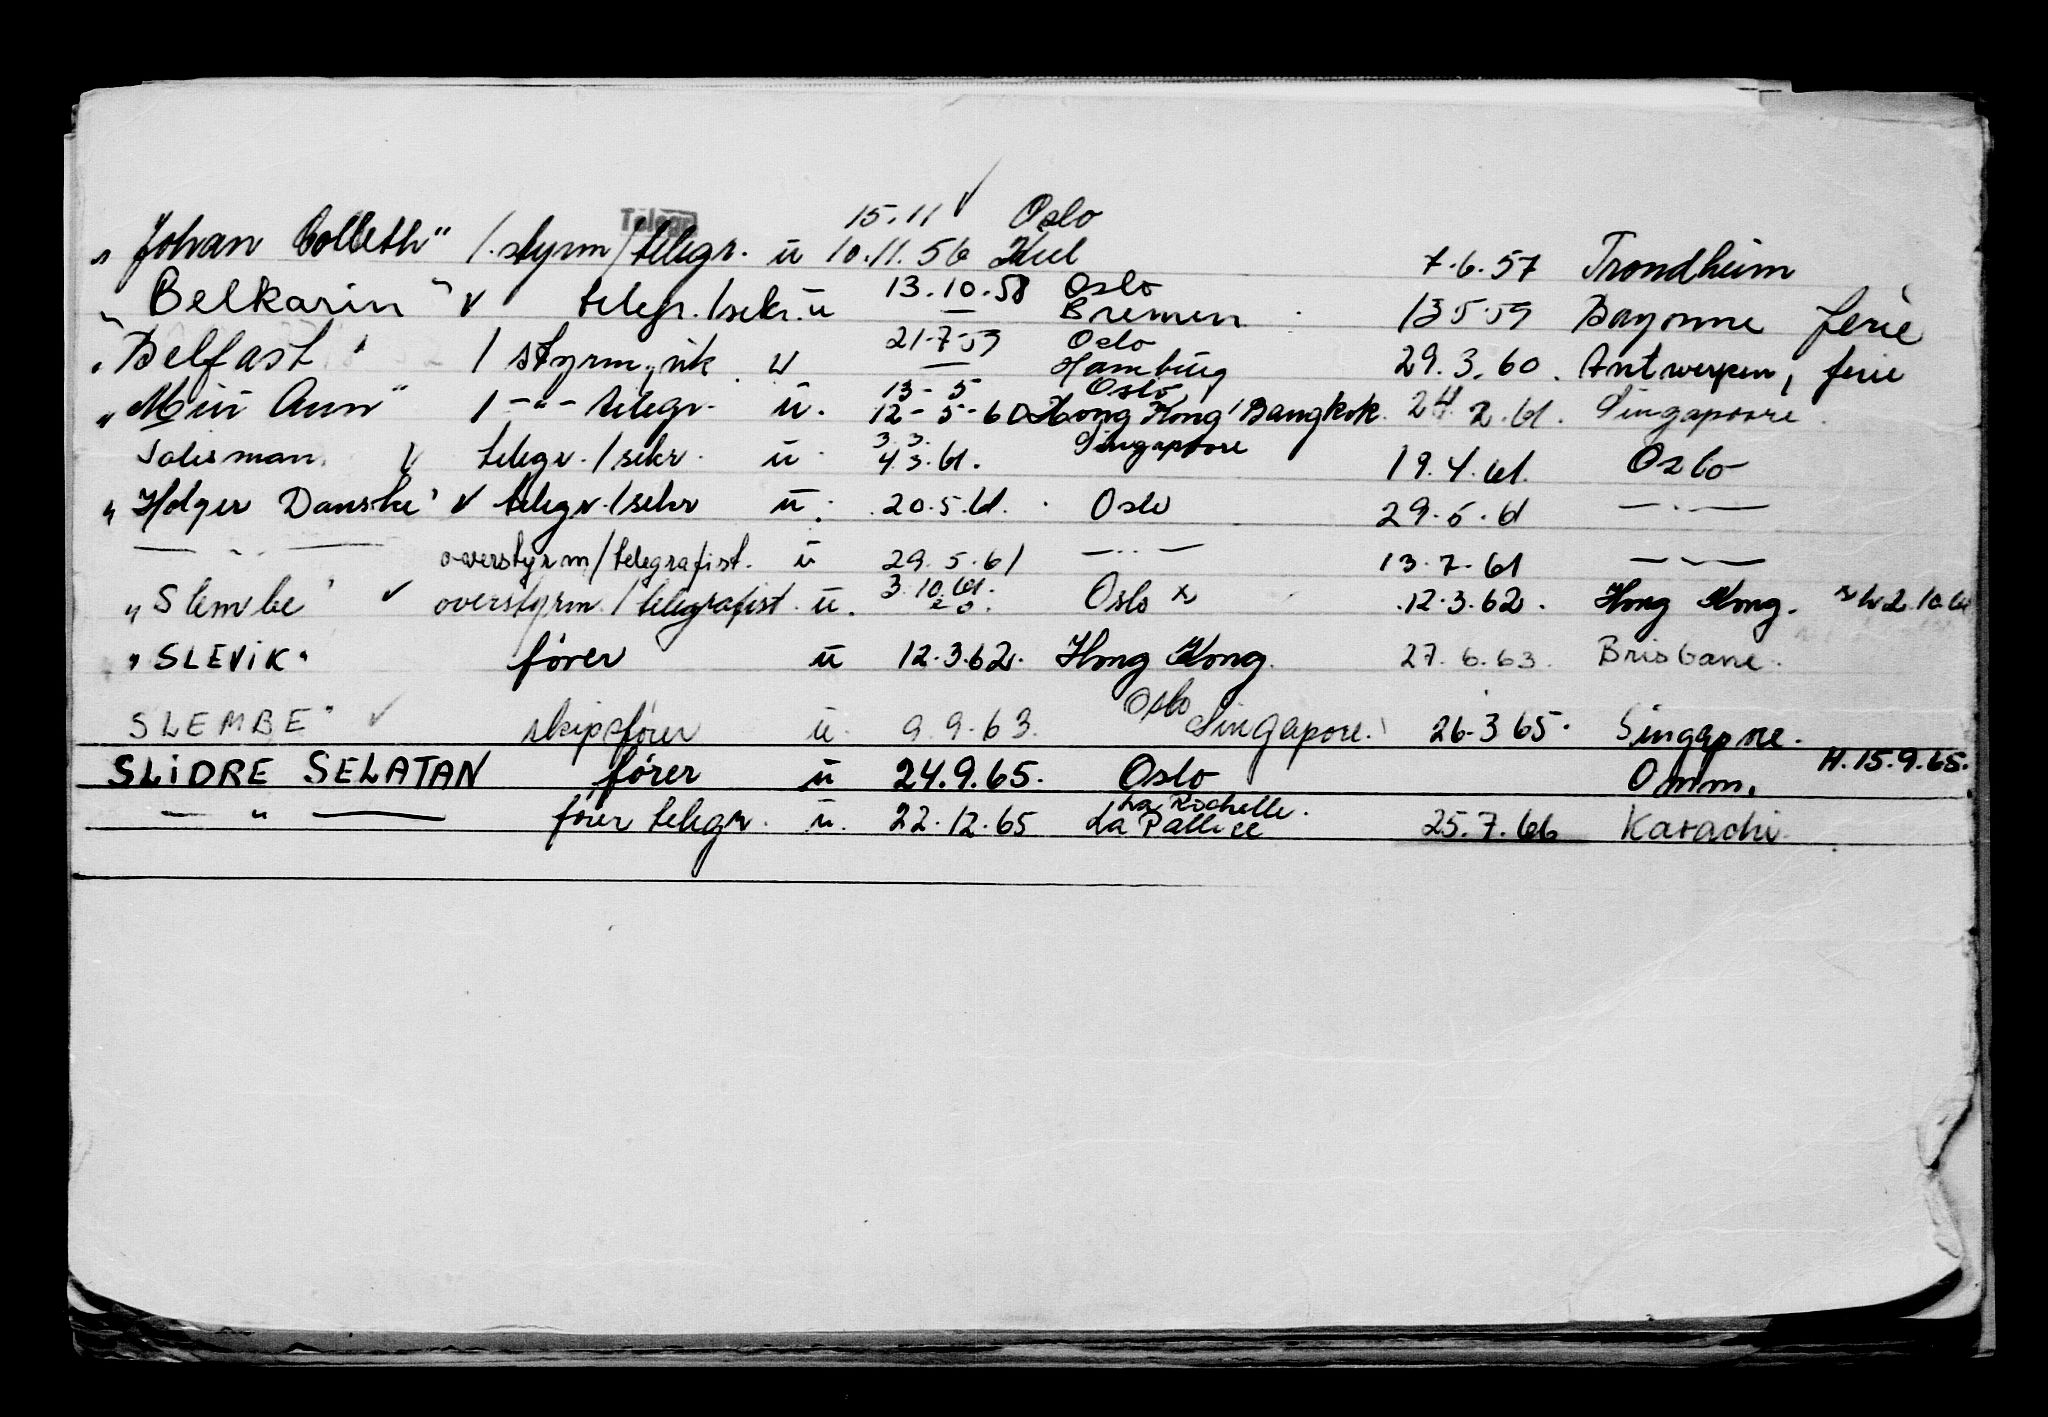 Telegr. 15.11 ✓ Oslo
"Johan Colleth" 1. styrm/telegr. u 10.11.56 Kiel 7.6.57 Trondheim
"Belkarin" ✓ telegr./sekr. u 13.10.58 Oslo
— Bremen 13 5 59 Bayonne ferie
"Belfast" 1 styrm, vik u 21-7-59 Oslo
— Hamburg 29.3.60. Antwerpen, ferie
13-5 Oslo
"Min Aun" 1 -"- telegr. u. 12-5-60 Hong Kong Bangkok. 24.2.61. Singapoore.
3.3. Singapoore
Talisman. ✓ telegr./sekr. u 4.3.61. 19.4.61. Oslo
"Holger Danske" ✓ telegr./sekr u. 20.5.61. Oslo 29.5.61 —"—
—"— overstyrm/telegrafist. u 29.5.61 —"— 13.7.61 —"—
"Slembe" ✓ overstyrm./telegrafist. u. 3.10.61. Oslo x 12.3.62. Hong Kong. x h 2.10.61
"SLEVIK" fører u 12.3.62. Hong Kong. 27.6.63. Brisbane.
Oslo
SLEMBE" ✓ skipsfører u. 9.9.63. Singapore. 26.3 65. Singapore.
SLIDRE SELATAN fører u 24.9.65. Oslo Omm. H.15.9.65.
La Rochelle.
—"— fører telegr. u. 22.12.65 La Pallice 25.7.66 Karachi.